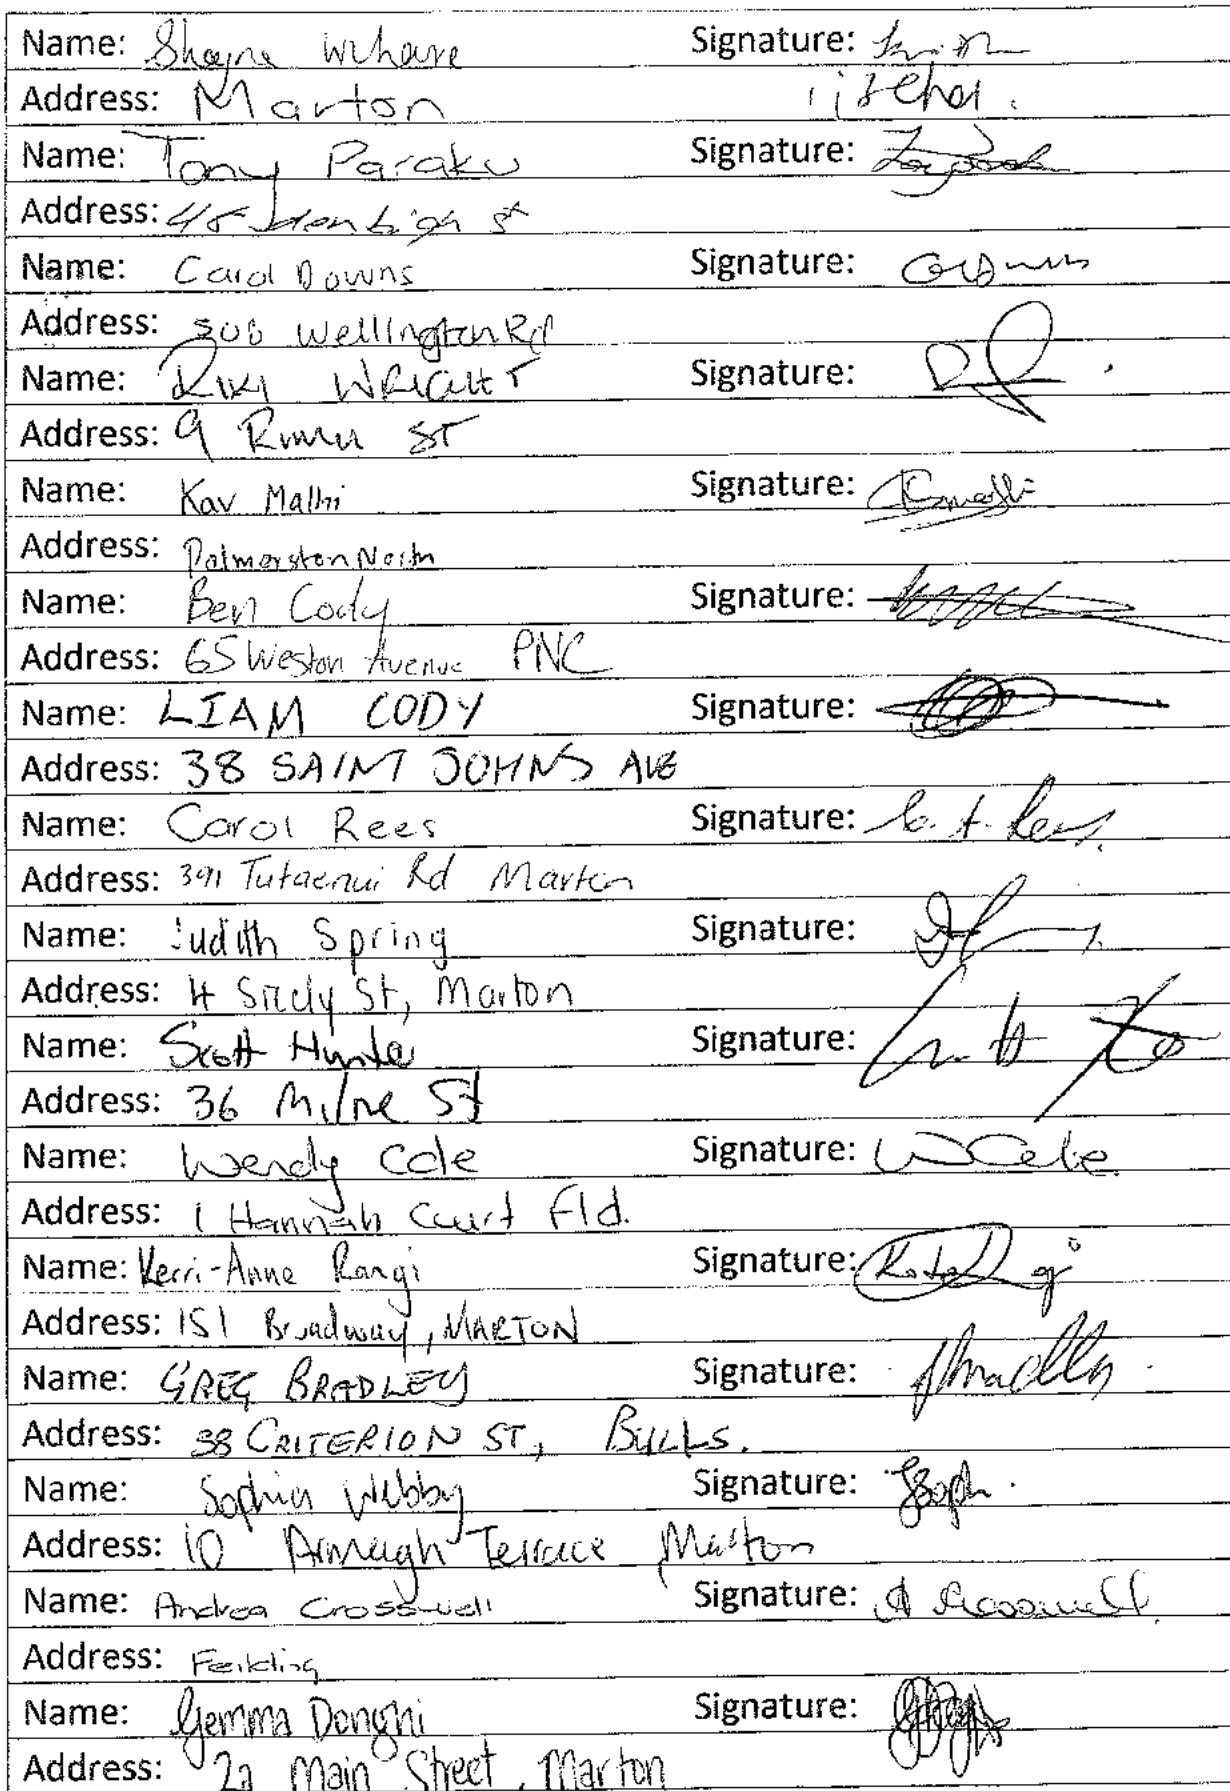 Name: Shayne Wihare Signature:
Address: Marton
Name: Tony Paraku Signature:
Address: 45 st
Name: Carol Downs Signature:
Address: 308 Wellington Rd
Name: RIKI WRIGHT Signature:
Address: 9 Rimu ST
Name: Kav Malhi Signature:
Address: Palmerston North
Name: Ben Cody Signature:
Address: 65 Weston Avenue PNC
Name: LIAM CODY Signature:
Address: 38 SAINT JOHNS AVE
Name: Carol Rees Signature:
Address: 391 Tutaenui Rd Marton
Name: Judith Spring Signature:
Address: 4 St, Marton
Name: Scott Hunter Signature:
Address: 36 Milne St
Name: Wendy Cole Signature: W Cole
Address: 1 Hannah Court Fld.
Name: Kerri-Anne Rangi Signature:
Address: 151 Broadway, MARTON
Name: GREG BRADLEY Signature:
Address: 38 CRITERION ST, BULLS.
Name: Sophia Webby Signature:
Address: 10 Armagh Terrace Marton
Name: Andrea Crosswell Signature: A Crosswell
Address: Feilding
Name: Gemma Donghi Signature:
Address: 2a Main Street, Marton